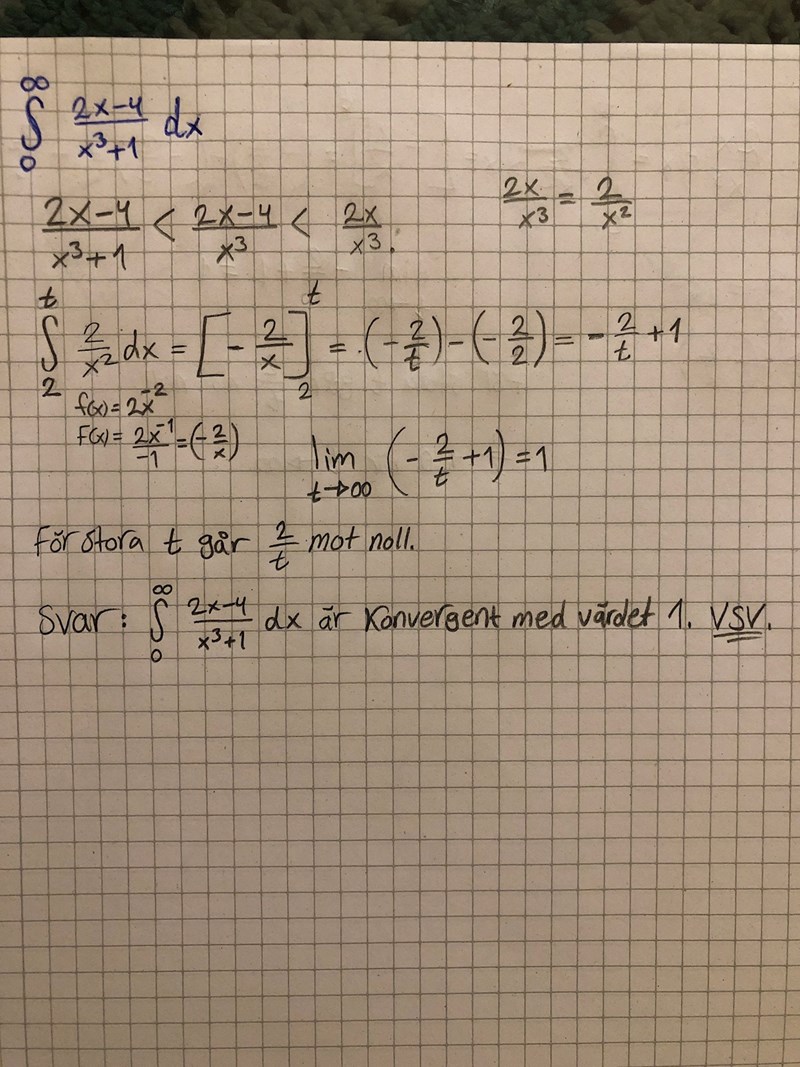 ∞∫0 (2x-4)/(x³+1) dx
(2x-4)/(x³+1) < (2x-4)/x³ < 2x/x³. 2x/x³ = 2/x²
t∫2 2/x² dx = [-2/x]t2 = (-2/t)-(-2/2) = -2/t +1
f(x)=2x⁻²
F(x)= 2x⁻¹/-1 = (-2/x)
lim t→∞ (-2/t +1) = 1
För stora t går 2/t mot noll.
Svar: ∞∫0 (2x-4)/(x³+1) dx är konvergent med värdet 1. VSV.